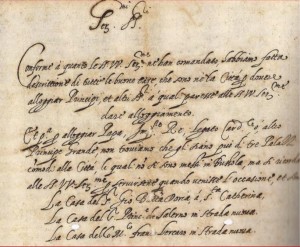 Ser.mi Sig.ri
Conforme à quanto le AA.VV. Ser.me ne han comandato, habbiamo fatta
descrittione di tutte le buone case che sono ne la Città, p. dover
alloggiar Principi, et altri à quai paresse alle AA.VV. Ser.me
dare alloggiamento.
p. alloggiar Papa, Im.re, Re, Legato Card.le ò altro
Principe grande, non troviamo che gli siano più di tre Palazzi
comodi alla Città, li quai nò si sono messi in Bussola, ma si
alle AA.VV. Ser.me servirsene quando venisse l'occasione, et
La Casa del S.r Gio D'Oria, à S.ta Catherina,
La Casa del di Salerno in strada nuova.
La Casa del M.co fran. Lercaro in strada nuova.